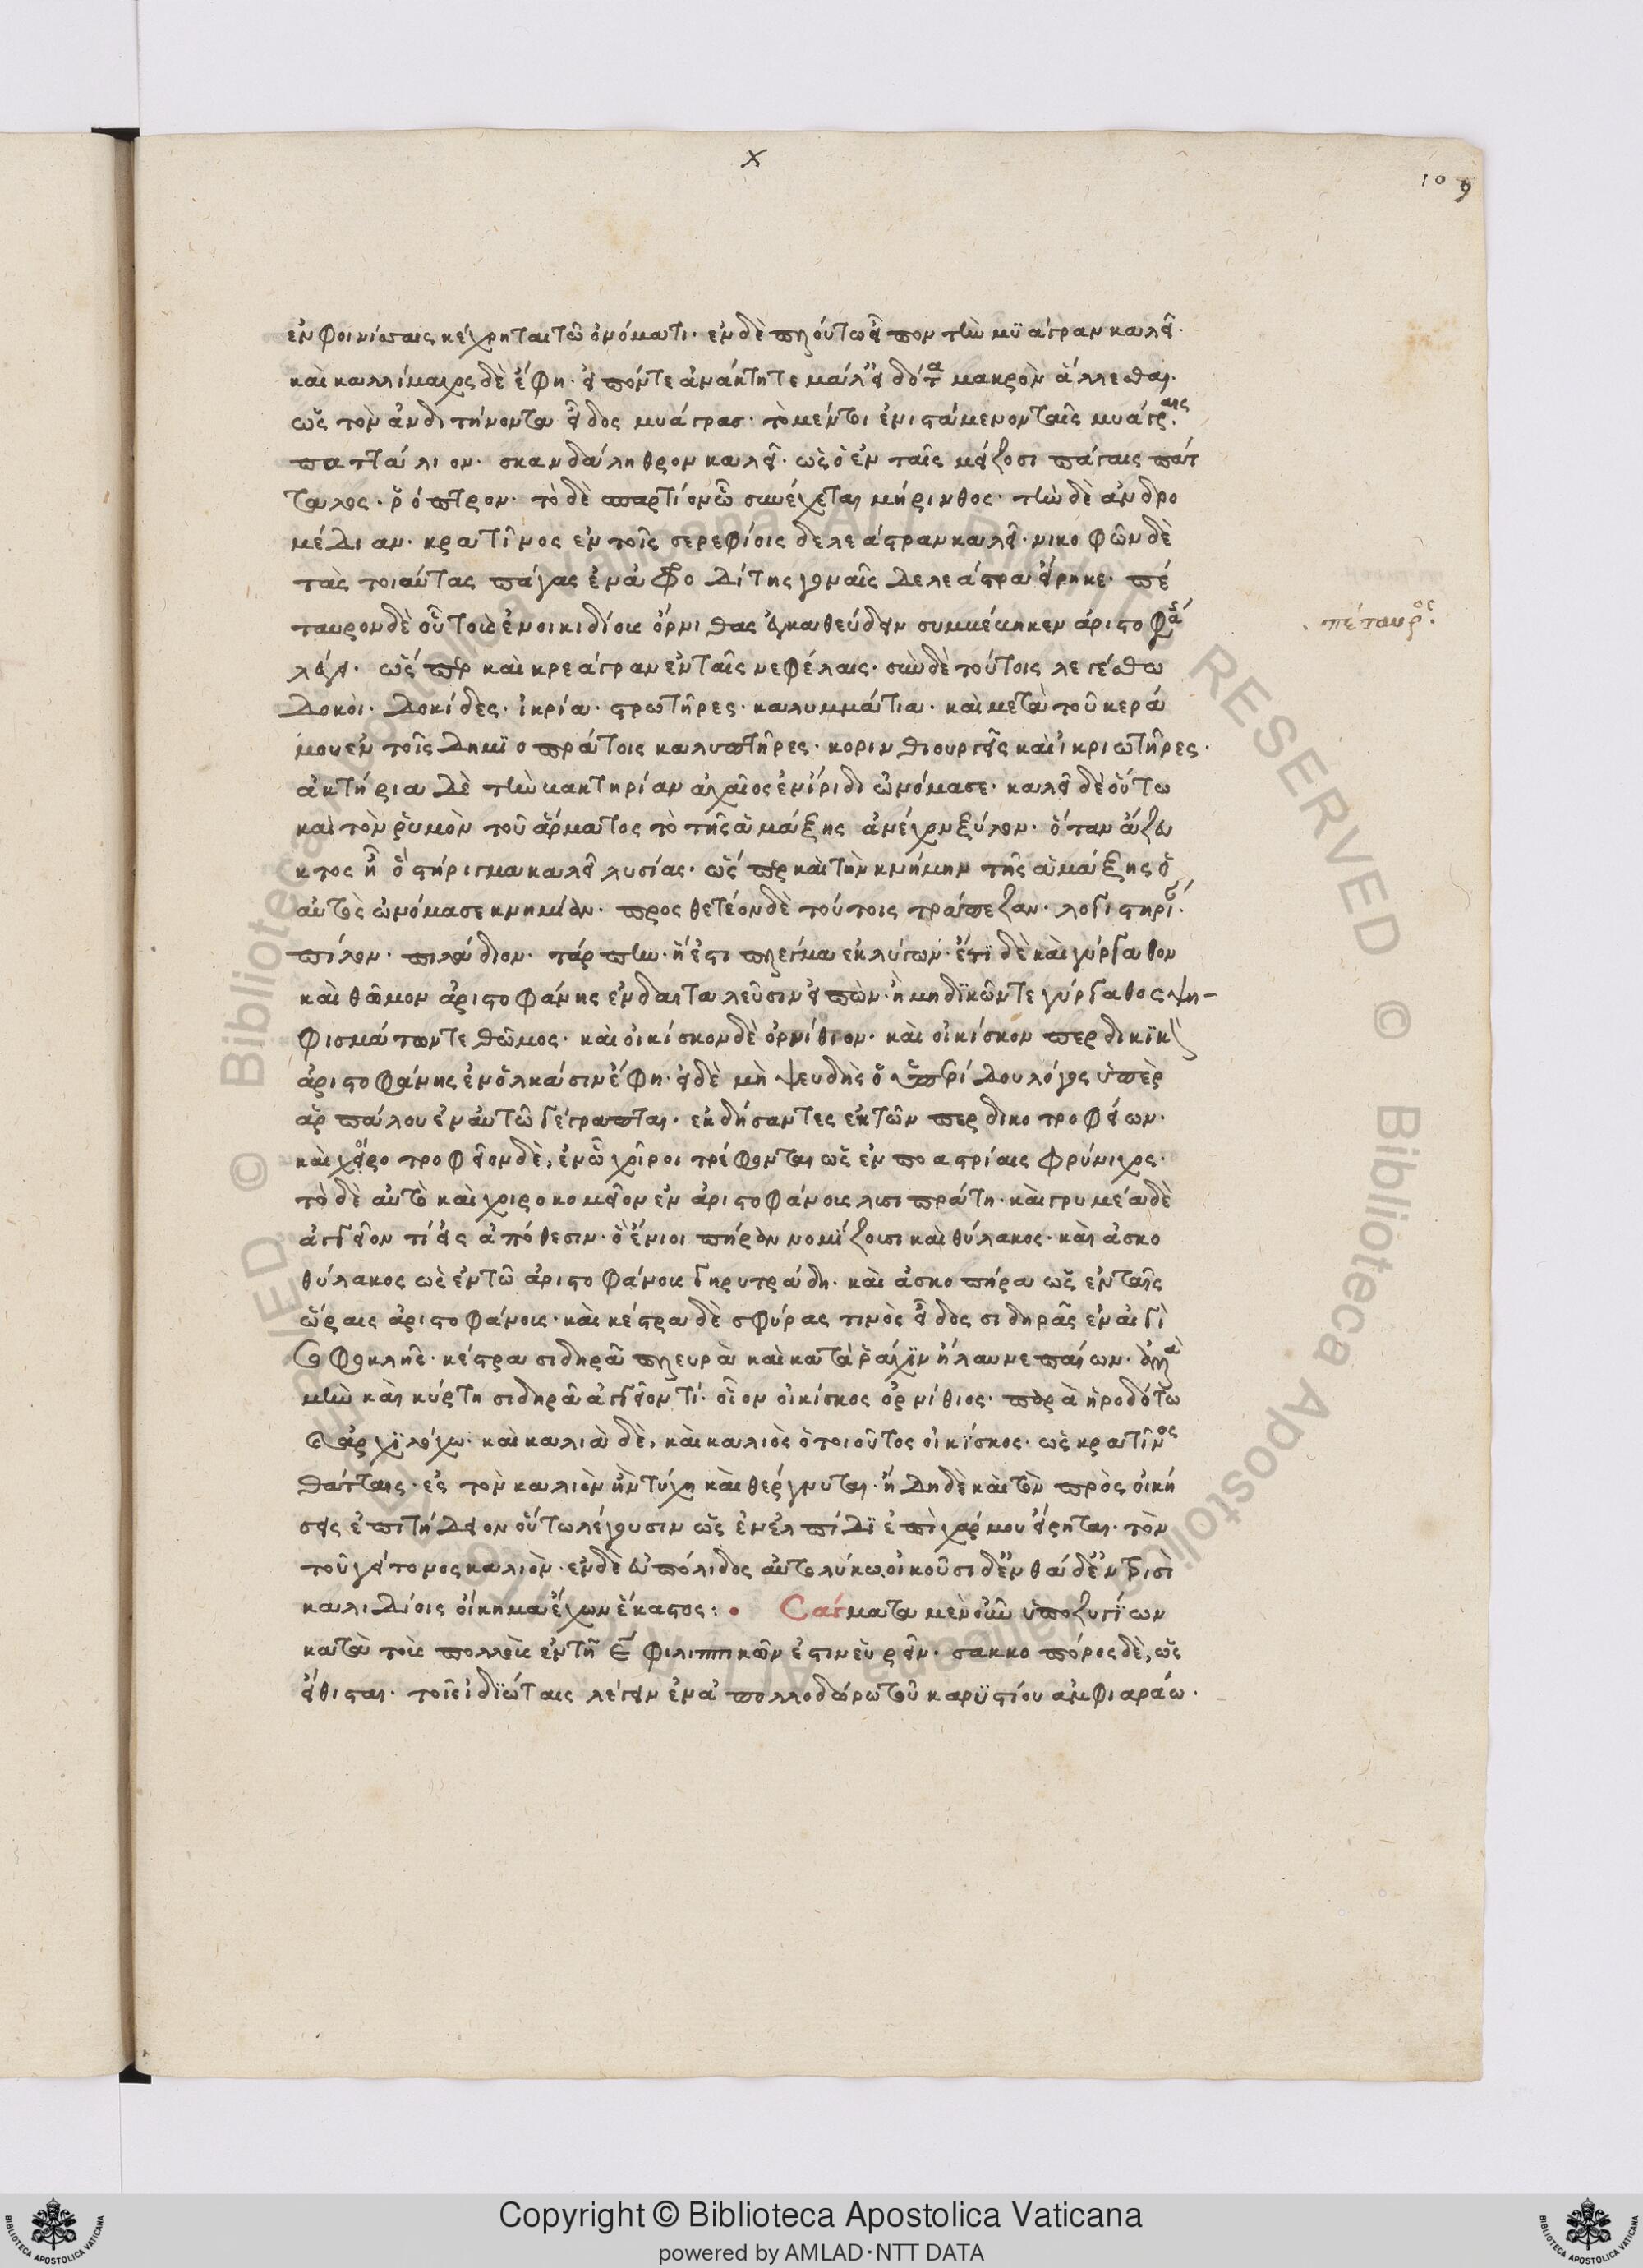 x
109
ἐν φοινίσσαις κέχρηται τῶ ὀνόματι· ἐν δὲ πλούτω εἶπον τὴν μϋάγραν καλεῖ·
καὶ καλλίμαχος δὲ ἔφη· εἰπόντε ἀνάκτητε μάλ' εἰδότα μακρὸν ἄλλεσθαι·
ὡς τὸν ἀνδικτήνοντα εἶδος μυάγρασ· τὸ μέντοι ἐνιστάμενον ταῖς μυάγραις·
πατταλιον· σκανδάληθρον καλεῖ· ὡς ὁ ἐν ταῖς μείζοσι πάγαις πάτ
ταλος· ῥόπτρον· τὸ δὲ σπαρτίον ὧ συνέχεται μήρινθος· τὴν δὲ ἀνδρο
μέδιαν· κρατῖνος ἐν τοῖς σερεφίοις δελεάστραν καλεῖ· νικοφῶν δὲ
τὰς τοιαύτας πάγας ἐν ἀφροδίτης γοναῖς δελεάστρα εἴρηκε· πέ
ταυρον δὲ οὗ τοὺς ἐνοικιδίους ὄρνιθας ἐγκαθεύδειν συμβέβηκεν ἀριστοφά
λέγει· ὥσπερ καὶ κρεάγραν ἐν ταῖς νεφέλαις· σὺν δὲ τούτοις λεγέσθω
δοκοὶ· δοκίδες· ἰκρία· στρωτῆρες· καλυμμάτια· καὶ μετὰ τοῦ κερά
μου ἐν τοῖς δημϊοπράτοις καλυπτῆρες· κορινθιουργεῖς καὶ ἰκριωτῆρες·
ἀκτήρια δὲ τὴν βακτηρίαν ἀχαῖος ἐν ἴριδι ὠνόμασε· καλεῖ δὲ οὕτω
καὶ τὸν ῥυμὸν τοῦ ἅρματος τὸ τῆς ἁμάξης ἀνέχον ξύλον· ὅταν ἄζευ
κτος ἦ ὃ στήριγμα καλεῖ λυσίας· ὥσπερ καὶ τὴν κνήμην τῆς ἁμάξης ὁ
αὐτὸς ὠνόμασε κνημίδα· προσθετέον δὲ τούτοις τράπεζαν· λογιστηρι
πίλον· πιλίδιον· τάρπην· ἥ ἐστι πλέγμα ἐκ λύγων· ἔτϊ δὲ καὶ γύργαθον
καὶ θῶμον ἀριστοφάνης ἐν δαιταλεῦσιν εἰπὼν· ἢ μηδϊκῶν τε γύργαθος ψη-
φισμάτων τε θῶμος· καὶ οἰκίσκον δὲ ὀρνίθιον· καὶ οἰκίσκον περδικϊκ
ἀριστοφάνης ἐν ὁλκάσιν ἔφη· εἰ δὲ μὴ ψευδὴς ὁ ὑπερίδου λόγος ὑπὲρ
ἁρπάλου ἐν αὐτῶ γέγραπται· ἐκδήσαντες ἐκ τῶν περδικοτροφείων·
καὶ χοιροτροφεῖον δὲ, ἐν ὧ χοῖροι τρέφονται ὡς ἐν ποαστρίαις φρύνιχος·
τὸ δὲ αὐτὸ καὶ χοιροκομεῖον ἐν ἀριστοφάνους λυσιστράτη· καὶ γρυμέα δὲ
ἀγγεῖον τί εἰς ἀπόθεσιν· ὃ ἔνιοι πήραν νομίζουσι καὶ θύλακος· καὶ ἀσκο
θύλακος ὡς ἐν τῶ ἀριστοφάνους γηρυτράδη· καὶ ἀσκοπήρα ὡς ἐν ταῖς
ὥραις ἀριστοφάνους· καὶ κέστρα δὲ σφύρας τινὸς εἶδος σιδηρᾶς ἐν αἰγὶ
σοφοκλῆς· κέστρα σιδηρᾶ πλευρὰ καὶ κατὰ ῥάχϊν ἤλαυνε παίων·
μὴν καὶ κύρτη σιδηρᾶ ἀγγεῖον τί· οἷον οἰκίσκος ὀρνίθιος· παρὰ ἡροδότω
ἀρχϊλόχω· καὶ καλιὰ δὲ, καὶ καλιὸς ὁ τοιοῦτος οἰκϊσκος· ὡς κρατῖνος
θάτταις· ἐς τὸν καλιὸν ἢν τύχη καθείργνυται· ἤδη δὲ καὶ τὸν πρὸς οἰκή
σεις ἐπιτήδειον οὕτω λέγουσιν ὡς ἐν ἐλπίδϊ ἐπιχάρμου εἴρηται· τὸν
τοῦ γείτονος καλιὸν· ἐν δὲ εὐπόλιδος αὐτολύκω οἰκοῦσι δ' ἐνθάδ' ἐν τρισὶ
καλιδίοις οἴκημα ἔχων ἕκαστος: • Σάγματα μὲν οὖν ὑποζυγίων
κατὰ τοὺς πολλοὺς ἐν τῆ ϛ φιλιππικῶν ἐστιν εὑρεῖν· σακκοπόρος δὲ, ὡς
εἴθισται· τοῖς ἰδϊώταις λέγειν ἐν ἀπολλοδώρω τοῦ καρϋστίου ἀμφιαράω·
πέταυρος·
© Biblioteca Apostolica Vaticana ALL RIGHTS RESERVED
Copyright © Biblioteca Apostolica Vaticana
powered by AMLAD·NTT DATA
BIBLIOTECA APOSTOLICA VATICANA
BIBLIOTECA APOSTOLICA VATICANA